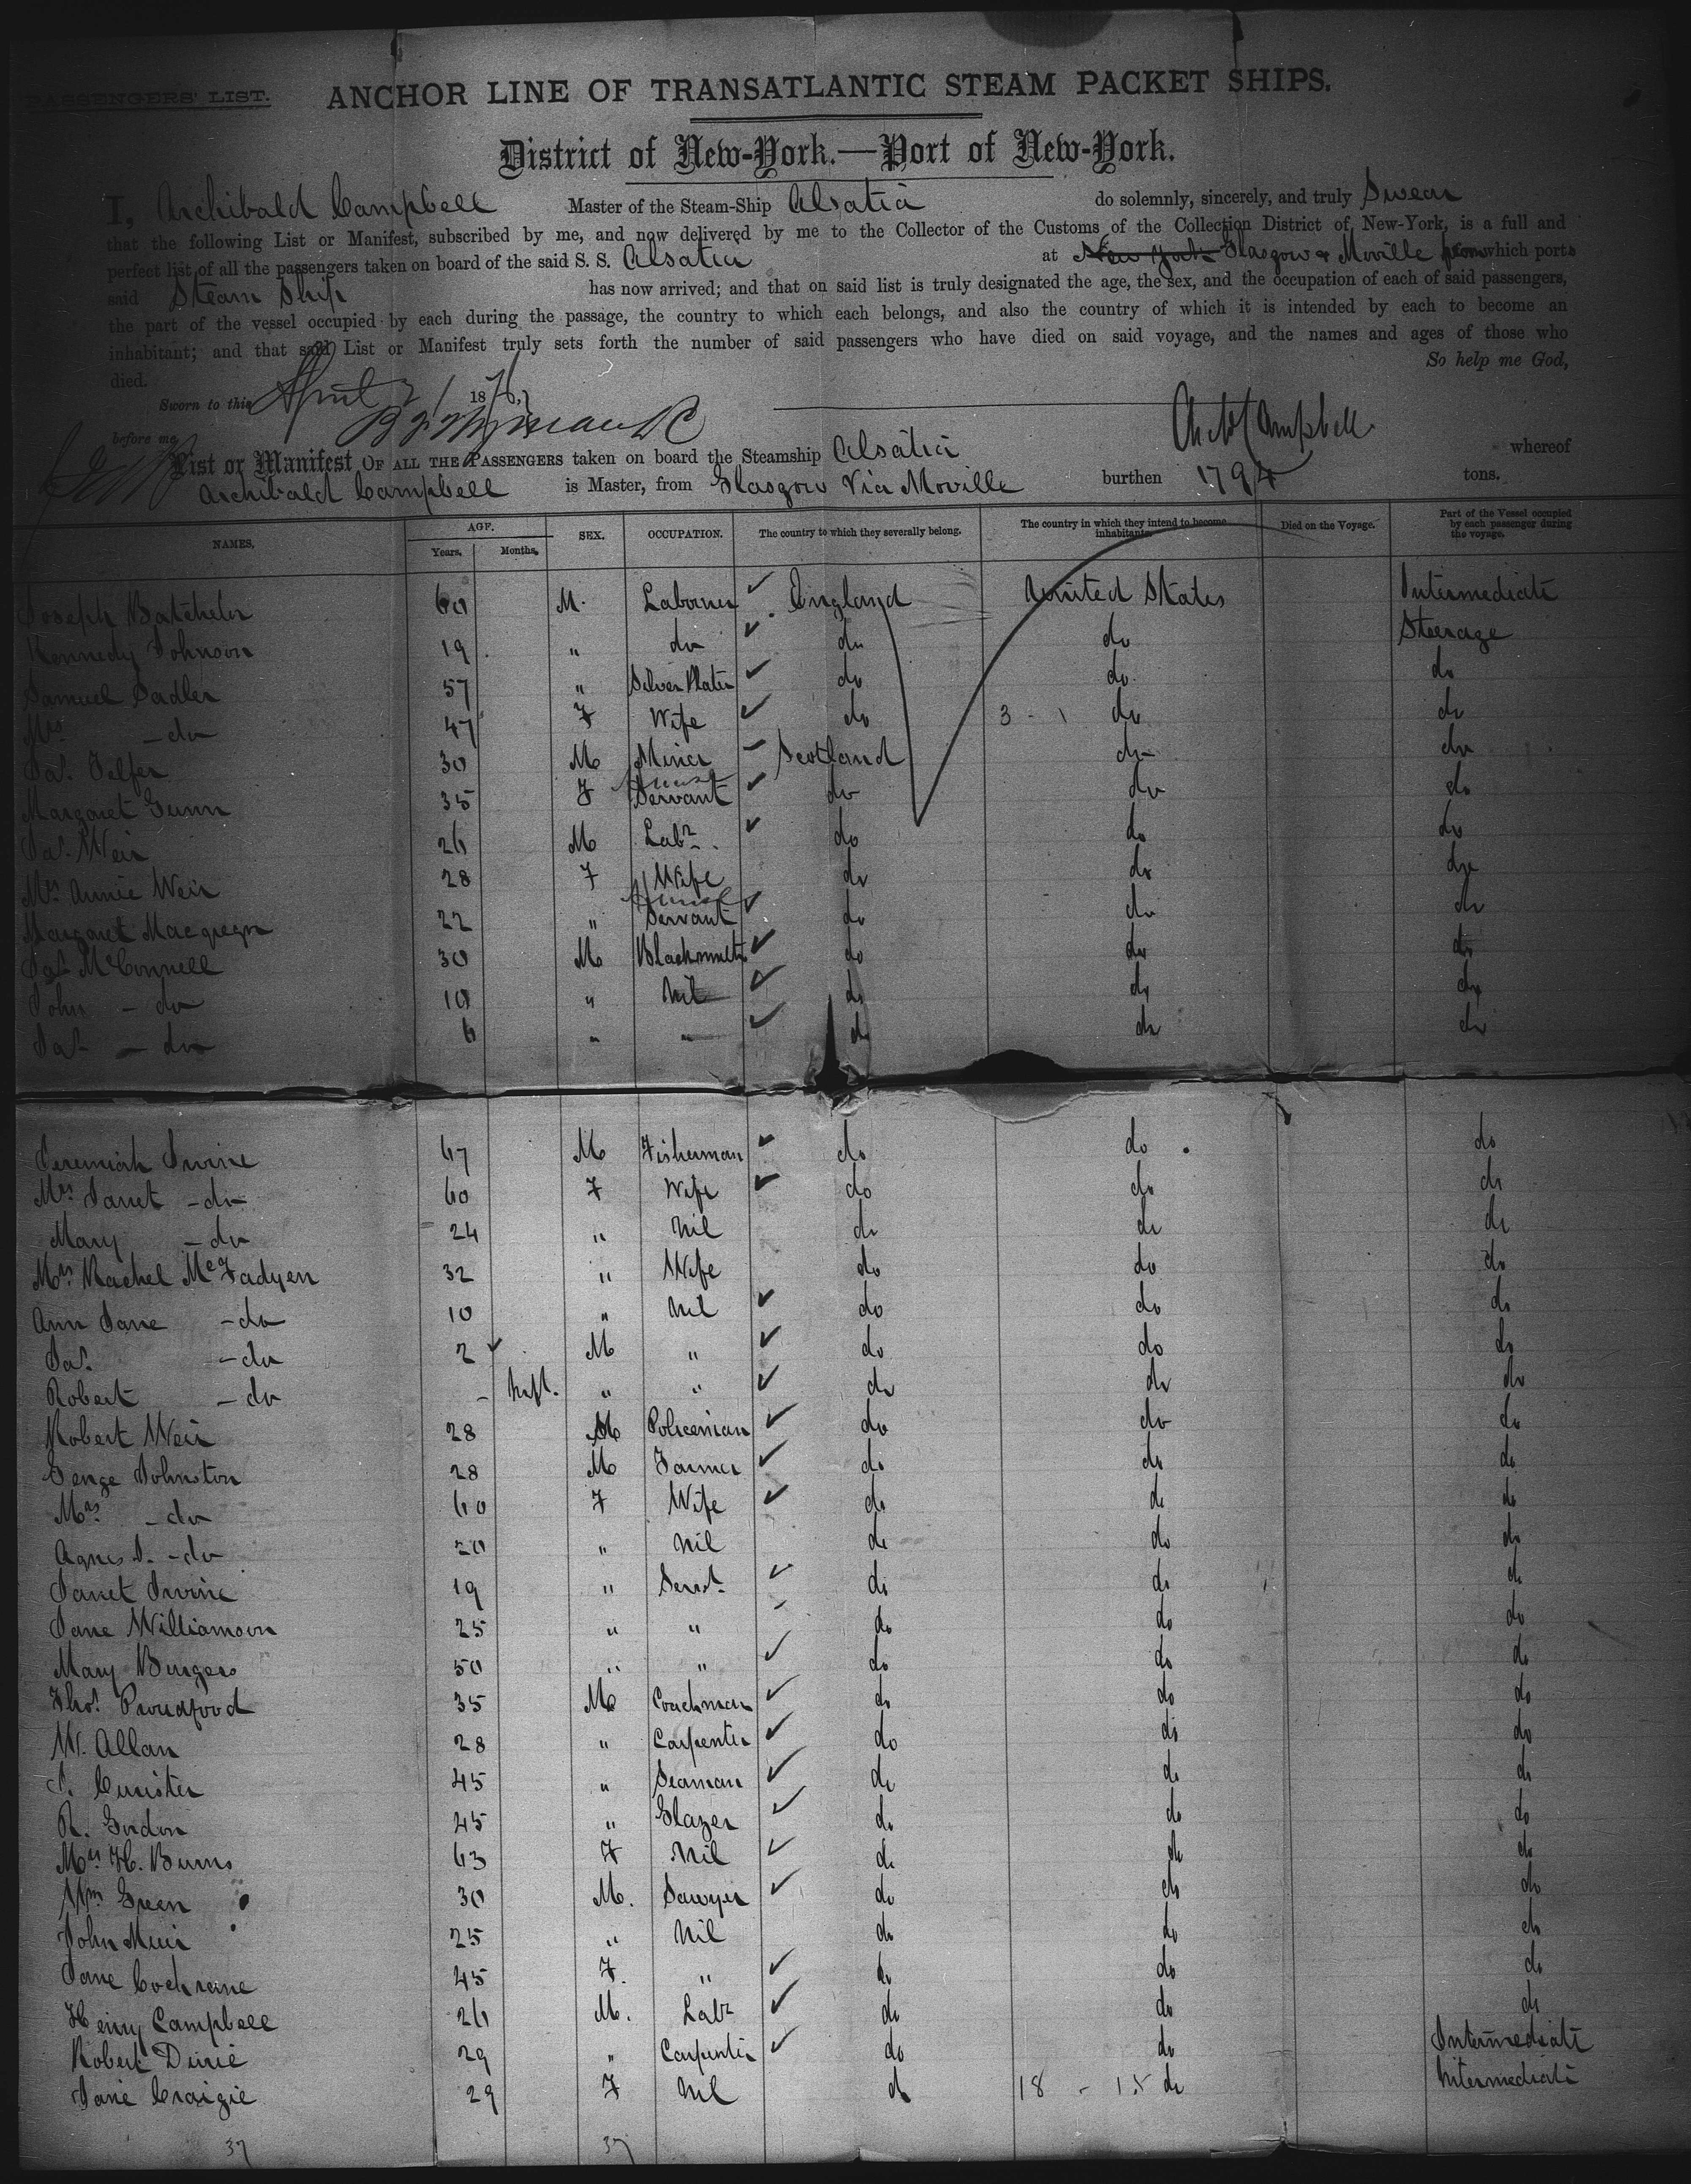 PASSENGERS' LIST. ANCHOR LINE OF TRANSATLANTIC STEAM PACKET SHIPS.
District of New-York.—Port of New-York.
I, Archibald Campbell Master of the Steam-Ship Alsatia do solemnly, sincerely, and truly Swear
that the following List or Manifest, subscribed by me, and now delivered by me to the Collector of the Customs of the Collection District of New-York, is a full and
perfect list of all the passengers taken on board of the said S. S. Alsatia at New York Glasgow & Moville from which ports
said Steam Ship has now arrived; and that on said list is truly designated the age, the sex, and the occupation of each of said passengers,
the part of the vessel occupied by each during the passage, the country to which each belongs, and also the country of which it is intended by each to become an
inhabitant; and that said List or Manifest truly sets forth the number of said passengers who have died on said voyage, and the names and ages of those who
died. So help me God,
Sworn to this April 1876,
before me Archd Campbell
List or Manifest OF ALL THE PASSENGERS taken on board the Steamship Alsatia whereof
Archibald Campbell is Master, from Glasgow Via Moville burthen 1794 tons.
NAMES. AGE. Years. Months. SEX. OCCUPATION. The country to which they severally belong. The country in which they intend to become inhabitants. Died on the Voyage. Part of the Vessel occupied by each passenger during the voyage.
Joseph Batchelor 60 M. Labourer England United States Intermediate
Kennedy Johnson 19 " do do do Steerage
Samuel Sadler 57 " Silver Plater do do do
Mrs - do 47 F Wife do 3 - 1 do do
Jas. Telfer 30 M Miner Scotland do do
Margaret Gunn 35 F Servant do do do
Jas. Weir 26 M Labr. do do do
Mrs Annie Weir 28 F Wife do do do
Margaret Macgregor 22 " Servant do do do
Jas McConnell 30 M Blacksmith do do do
John - do 10 " Nil do do do
Jas - do 6 " - do do do
Jeremiah Irvine 67 M Fisherman do do do
Mrs Janet - do 60 F Wife do do do
Mary - do 24 " Nil do do do
Mrs Rachel McFadyen 32 " Wife do do do
Ann Jane - do 10 " Nil do do do
Jas. - do 2 M " do do do
Robert - do - Inft. " " do do do
Robert Weir 28 M Policeman do do do
George Johnston 28 M Farmer do do do
Mrs - do 60 F Wife do do do
Agnes J. - do 20 " Nil do do do
Janet Irvine 19 " Servt. do do do
Jane Williamson 25 " " do do do
Mary Burgess 50 " " do do do
Thos. Proudfood 35 M Coachman do do do
W. Allan 28 " Carpenter do do do
J. 45 " Seaman do do do
R. Gordon 45 " Glazer do do do
Mrs H. Burns 63 F Nil do do do
Wm Green 30 M. Sawyer do do do
John Muir 25 " Nil do do do
Jane Cochrane 45 F. " do do do
Henry Campbell 26 M. Labr do do do
Robert Durie 29 " Carpenter do do Intermediate
Jane Craigie 29 F Nil do 18 - 15 do Intermediate
37 37